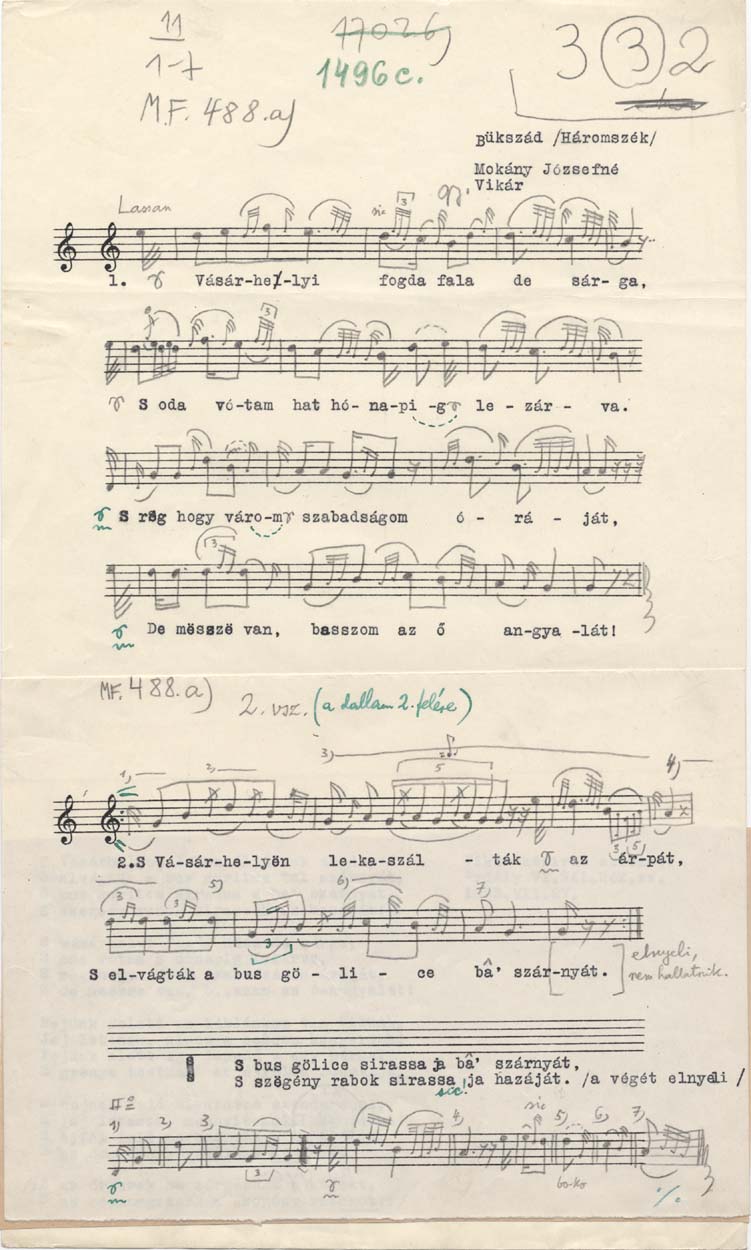 11
1-7
M.F. 488.a)
17026
1496c.
3 3 2
Bükszád /Háromszék/
Mokány Józsefné
Vikár
Lassan
sic
3
1. Vásár-hely-lyi fogda fala de sár- ga,
3
S oda vó-tam hat hó- na-pi -g le - zár - va.
S rég hogy város-m szabadságom ó - rá - ját,
3
De mëssze van, basszom az ő an-gya -lát!
MF. 488.a)
2. vsz. (a dallam 2. felére)
1) 2) 3) 5 4)
2.S Vá-sár-he-lyën le-ka-szál - ták az ár-pát,
3 5)
3 3 5) 6) 7)
3
S el-vágták a bus gö - li - ce bâ' szár-nyát.
elnyeli,
nem hallatszik.
S bus gölice sirassa ja bâ' szárnyát,
S szëgény rabok sirassa ja hazáját. /a végét elnyeli /
sic!
1) 2) 3) 4) sic 5) 6) 7)
3